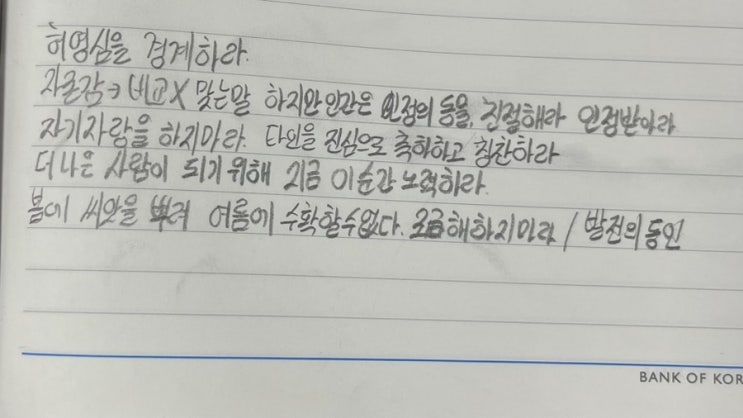 허영심을 경계하라.
자존감→비교X 맞는말 하지만 인간은 인정의 동물, 친절해라 인정받아라
자기자랑을 하지마라. 타인을 진심으로 축하하고 칭찬하라
더 나은 사람이 되기 위해 지금 이순간 노력하라.
봄에 씨앗을 뿌려 여름에 수확할 수 없다. 조급해하지마라 / 발전의 동인
BANK OF KOR